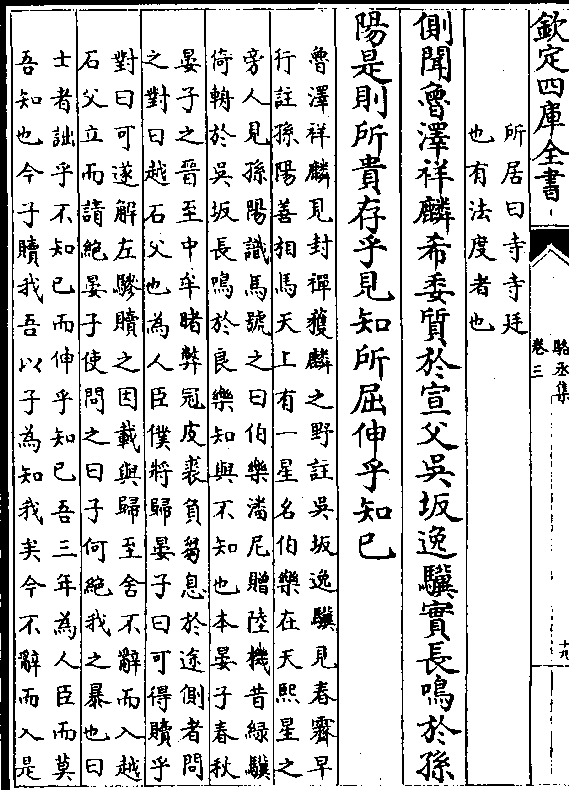 欽定四庫全書
駱丞集
卷三
十九
所居曰寺寺廷
也有法度者也
側聞魯澤祥麟希委質於宣父吳坂逸驥實長鳴於孫
陽是則所貴存乎見知所屈伸乎知已
魯澤祥麟見封禪獲麟之野註吳坂逸驥見春霽早
行註孫陽善相馬天上有一星名伯樂在天熙星之
旁人見孫陽識馬號之曰伯樂潘尼贈陸機昔緑驥
倚輈於吳坂長鳴於良樂知與不知也本晏子春秋
晏子之晉至中牟睹弊冠皮裘負芻息於途側者問
之對曰越石父也為人臣僕將歸晏子曰可得贖乎
對曰可遂解左驂贖之因載與歸至舍不辭而入越
石父立而請絶晏子使問之曰子何絶我之暴也曰
士者詘乎不知已而伸乎知已吾三年為人臣而莫
吾知也今子贖我吾以子為知我矣今不辭而入是